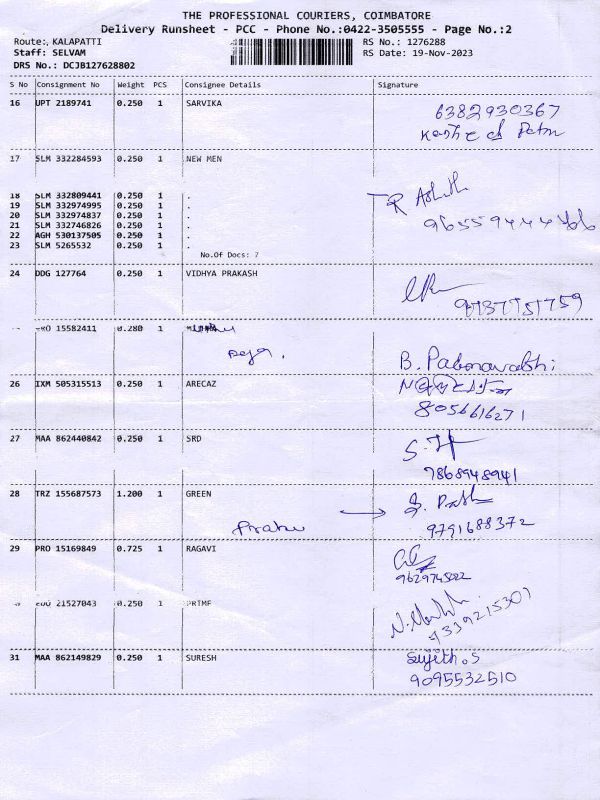 THE PROFESSIONAL COURIERS, COIMBATORE
Delivery Runsheet - PCC - Phone No.:0422-3505555 - Page No.:2
Route: KALAPATTI
RS No.: 1276288
Staff: SELVAM
RS Date: 19-Nov-2023
DRS No.: DCJB127628802
S No Consignment No Weight PCS Consignee Details Signature
16 UPT 2189741 0.250 1 SARVIKA
6382930367
17 SLM 332284593 0.250 1 NEW MEN
18 SLM 332809441 0.250 1 .
19 SLM 332974995 0.250 1 .
20 SLM 332974837 0.250 1 .
21 SLM 332746826 0.250 1 .
22 AGH 530137505 0.250 1 .
23 SLM 5265532 0.250 1 .
No.Of Docs: 7
24 DDG 127764 0.250 1 VIDHYA PRAKASH
15582411 0.280 1
26 IXM 505315513 0.250 1 ARECAZ
8056616271
27 MAA 862440842 0.250 1 SRD
7868948941
28 TRZ 155687573 1.200 1 GREEN
9791688372
29 PRO 15169849 0.725 1 RAGAVI
9629745022
21527043 0.250 1 PRIME
31 MAA 862149829 0.250 1 SURESH
Sujith.S
9095532510